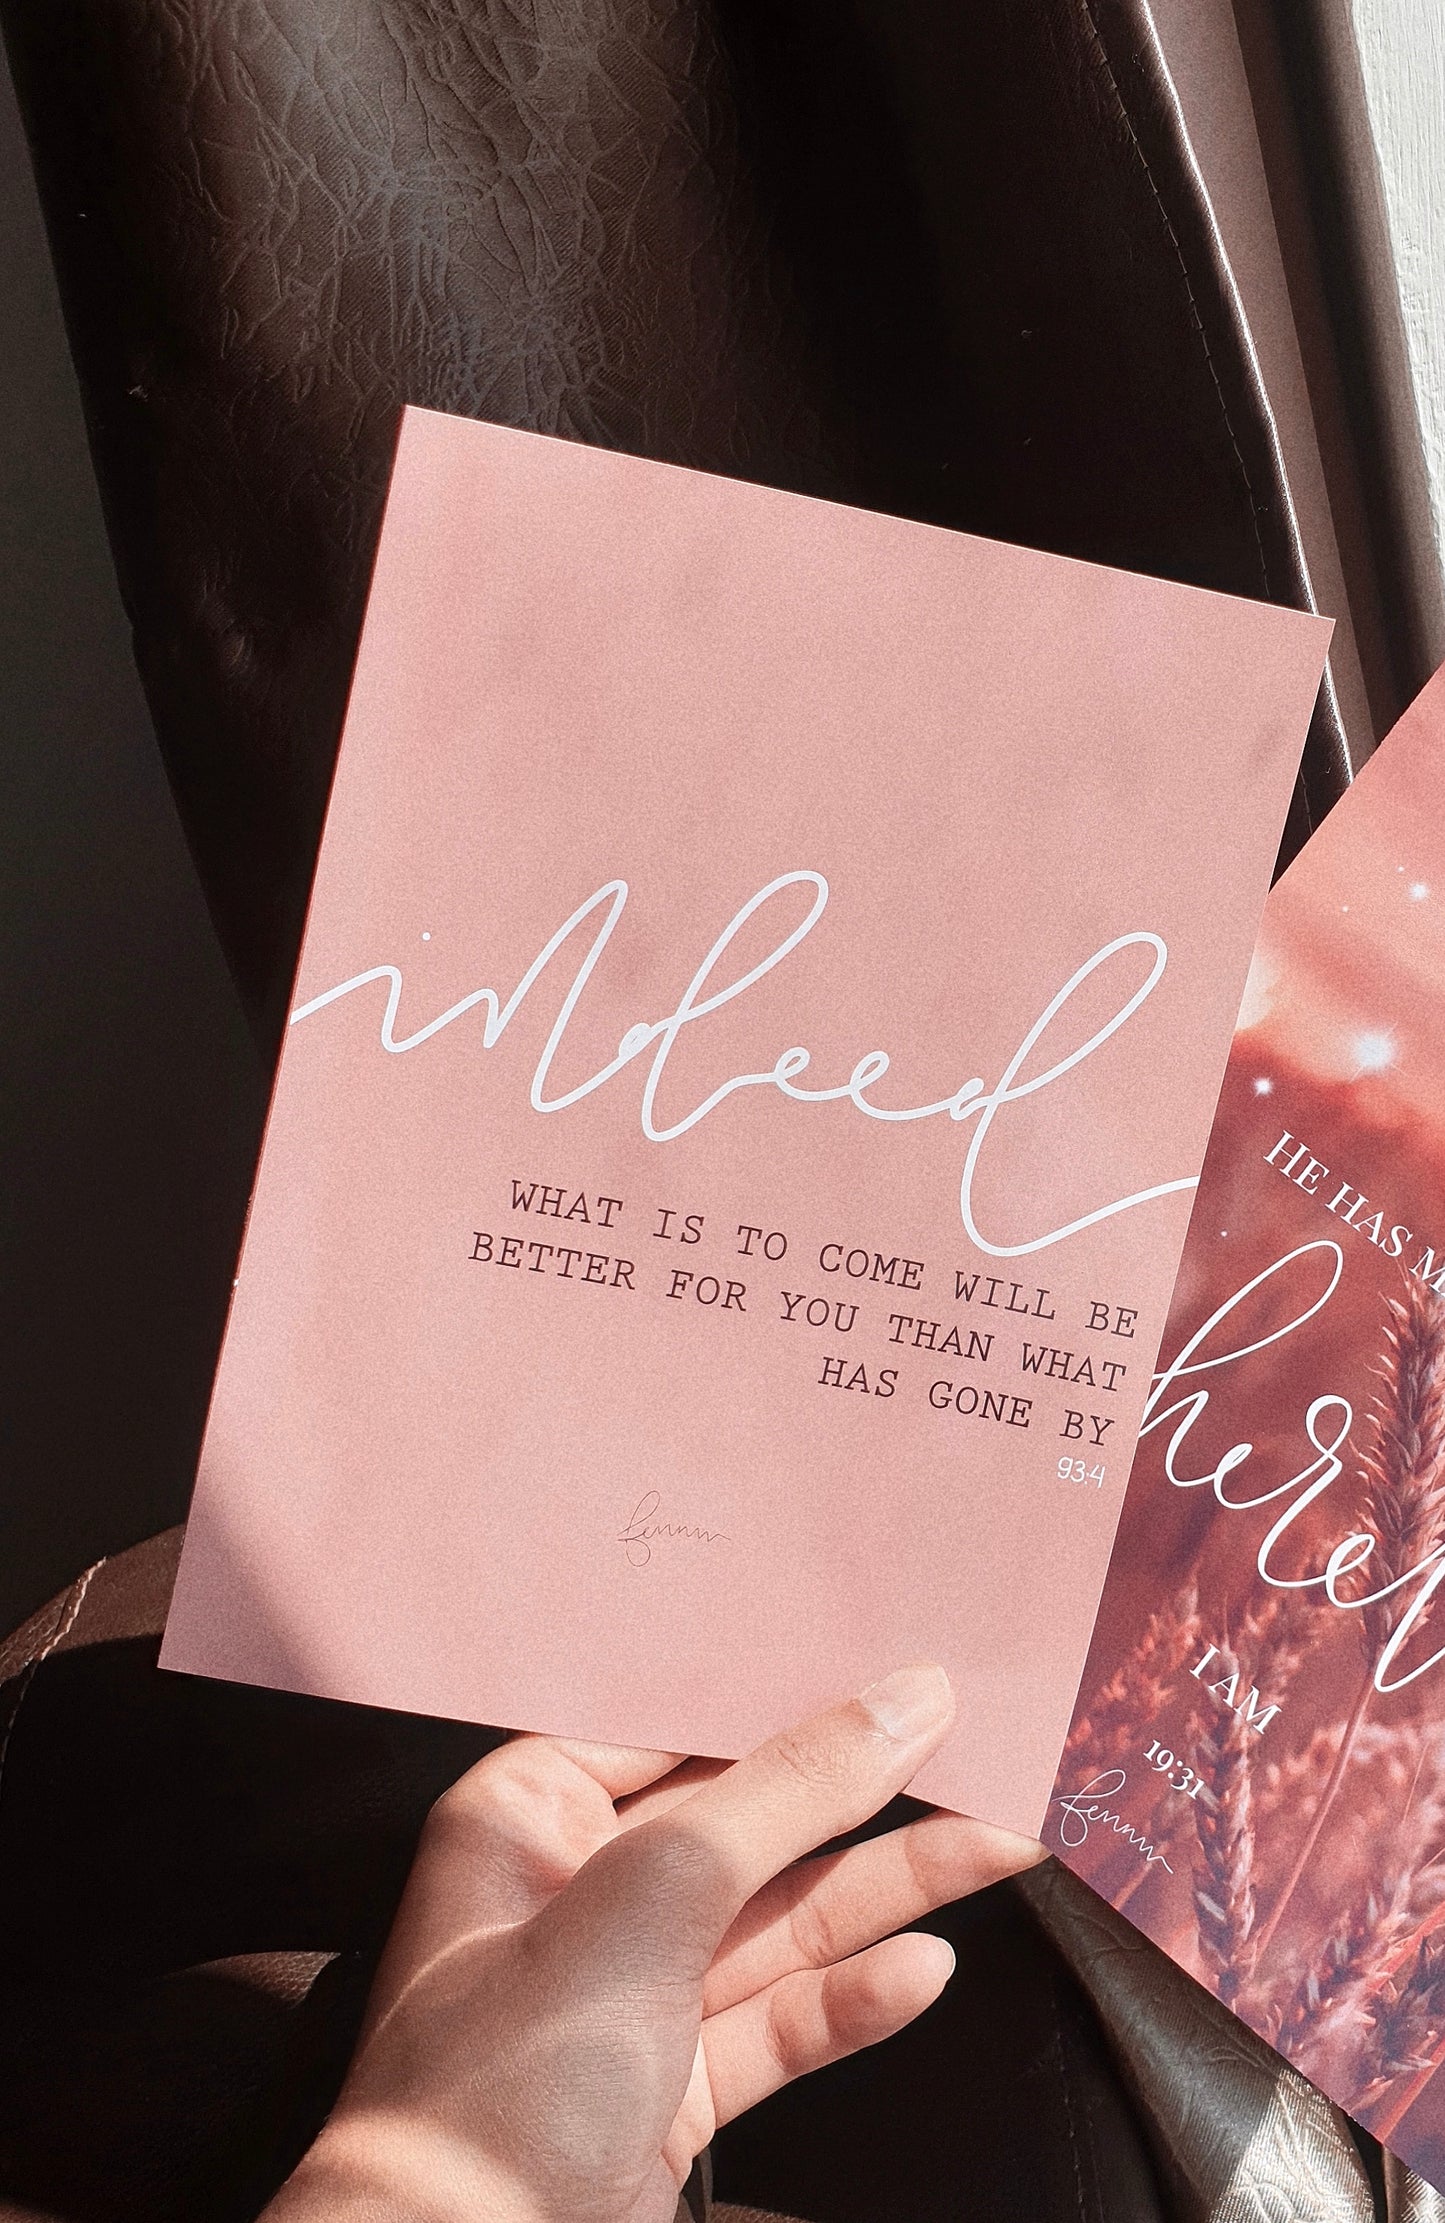 indeed
WHAT IS TO COME WILL BE
BETTER FOR YOU THAN WHAT
HAS GONE BY
93:4
HE HAS
I AM
19:31